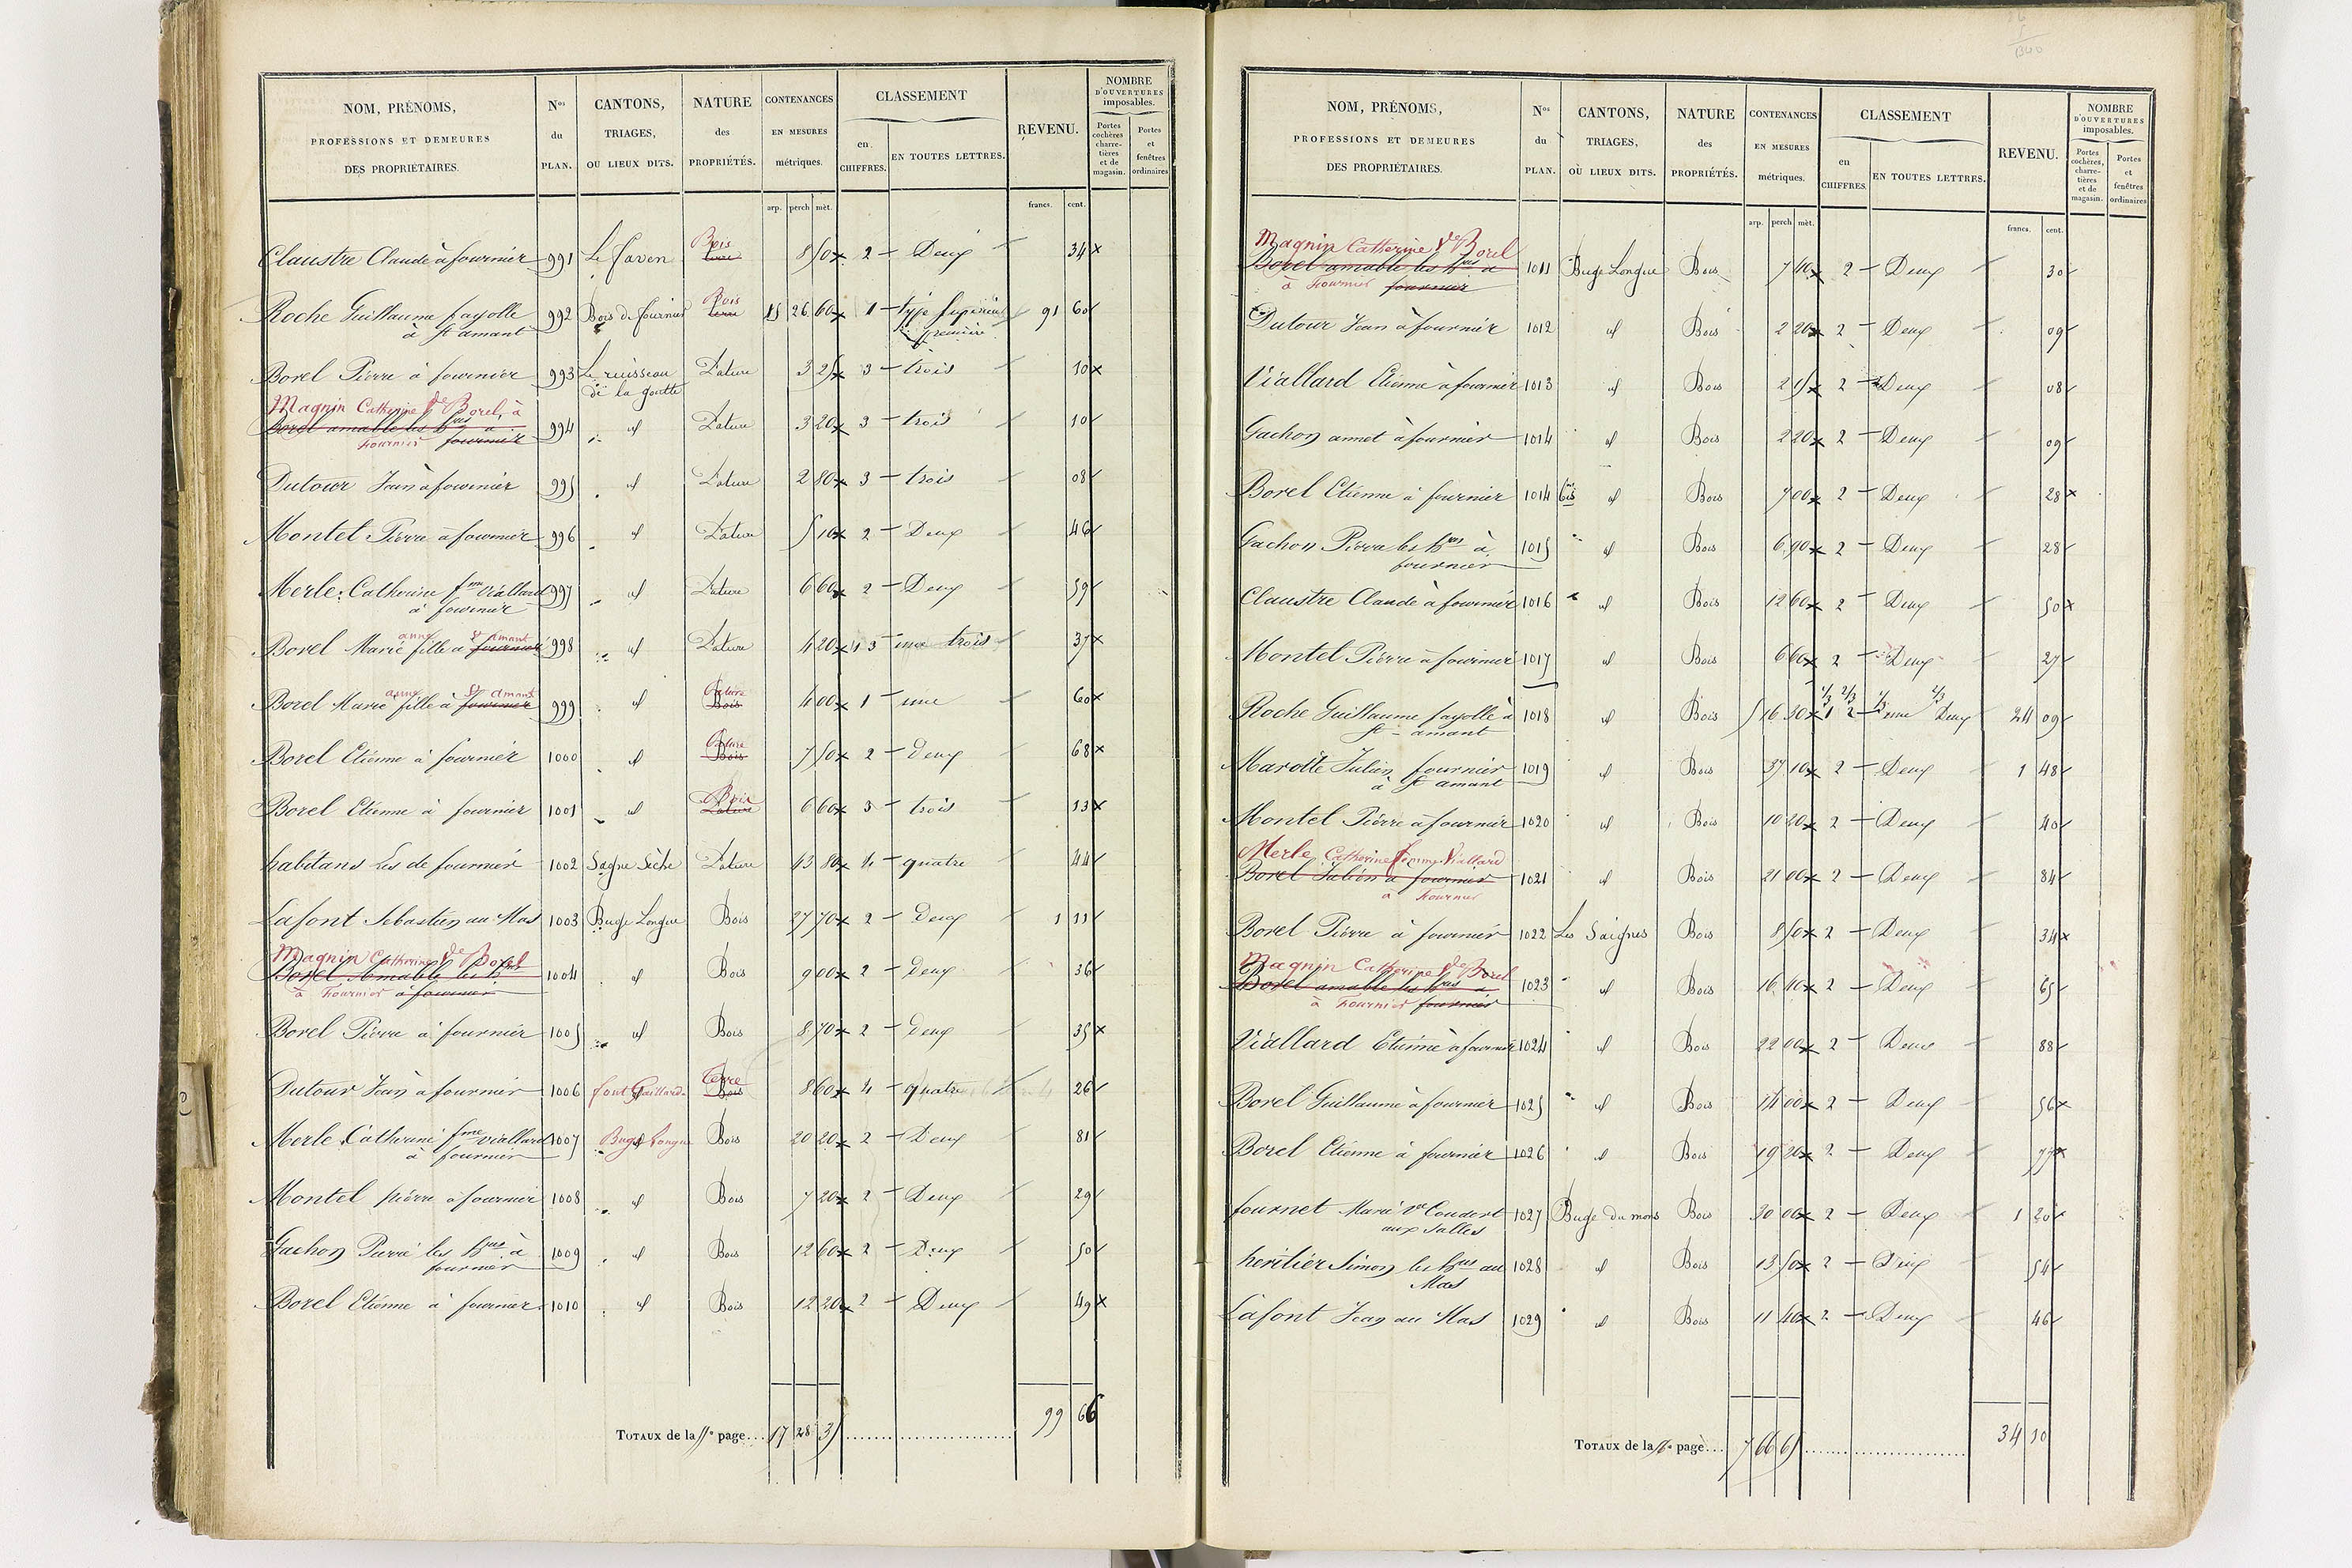 NOM, PRÉNOMS, PROFESSIONS ET DEMEURES DES PROPRIÉTAIRES. Nos du PLAN. CANTONS, TRIAGES, OU LIEUX DITS. NATURE des PROPRIÉTÉS. CONTENANCES EN MESURES métriques. CLASSEMENT en CHIFFRES. EN TOUTES LETTRES. REVENU. NOMBRE D'OUVERTURES imposables. Portes cochères charretières et de magasin. Portes et fenêtres ordinaires
arp. perch mèt. francs. cent.
Claustre Claude à fournier 991 Bois 8 50 2 Deux 34
Roche Guillaume fayolle 992 Bois de fournier Bois 15 26 60 1 type supérieur 91 60
à St amant première
Borel Pierre à fournier 993 Le ruisseau Pature 3 25 3 trois 10
de la goutte
Magnin Catherine Ve Borel, à
Borel amable les hers à 994 id Pature 3 20 3 trois 10
Fournier fournier
Dutour Jean à fournier 995 id Pature 2 80 3 trois 08
Montel Pierre à fournier 996 id Pature 5 10 2 Deux 46
Merle Catherine fme Viallard 997 id Pature 6 60 2 Deux 59
à fournier
anne St amant
Borel Marie fille à fournier 998 id Pature 4 20 3 trois 37
anne St amant Pature
Borel Marie fille à fournier 999 id Bois 4 00 1 une 60
Pature
Borel Etienne à fournier 1000 id Bois 7 50 2 Deux 68
Bois
Borel Etienne à fournier 1001 id Pature 6 60 3 trois 13
habitans Les de fournier 1002 Sagne Sèche Pature 43 80 4 quatre 44
Lafont Sebastien au Mas 1003 Buge Longue Bois 27 70 2 Deux 1 11
Magnin Catherine Ve Borel
Borel Amable les hers 1004 id Bois 9 00 2 Deux 36
à Fournier à fournier
Borel Pierre à fournier 1005 id Bois 8 70 2 Deux 35
Terre
Dutour Jean à fournier 1006 font Gaillarde Bois 8 60 4 quatre 26
Merle Catherine fme viallard 1007 Buge Longue Bois 20 20 2 Deux 81
à fournier
Montel pierre à fournier 1008 id Bois 7 20 2 Deux 29
Gachon Pierre les hers à 1009 id Bois 12 60 2 Deux 50
fournier
Borel Etienne à fournier 1010 id Bois 12 20 2 Deux 49
TOTAUX de la page 17 28 35 99 66
NOM, PRÉNOMS, PROFESSIONS ET DEMEURES DES PROPRIÉTAIRES. Nos du PLAN. CANTONS, TRIAGES, OÙ LIEUX DITS. NATURE des PROPRIÉTÉS. CONTENANCES EN MESURES métriques. CLASSEMENT en CHIFFRES EN TOUTES LETTRES. REVENU. NOMBRE D'OUVERTURES imposables. Portes cochères, charretières et de magasin. Portes et fenêtres ordinaires
arp. perch mèt. francs. cent.
Magnin Catherine Ve Borel
Borel amable les hers à 1011 Buge Longue Bois 7 40 2 Deux 30
à Fournier fournier
Dutour Jean à fournier 1012 id Bois 2 20 2 Deux 09
Viallard Etienne à fournier 1013 id Bois 2 15 2 Deux 08
Gachon annet à fournier 1014 id Bois 2 20 2 Deux 09
Borel Etienne à fournier 1014 bis id Bois 7 00 2 Deux 28
Gachon Pierre les hers à 1015 id Bois 6 90 2 Deux 28
fournier
Claustre Claude à fournier 1016 id Bois 12 60 2 Deux 50
Montel Pierre à fournier 1017 id Bois 6 60 2 Deux 27
1/3 2/3 1/3 2/3
Roche Guillaume fayolle à 1018 id Bois 5 16 30 1 2 une Deux 24 09
St-amant
Marotte Julien fournier 1019 id Bois 37 10 2 Deux 1 48
à St amant
Montel Pierre à fournier 1020 id Bois 10 20 2 Deux 40
Merle Catherine femme Viallard
Borel Julien à fournier 1021 id Bois 21 00 2 Deux 84
à Fournier
Borel Pierre à fournier 1022 Les Saignes Bois 8 50 2 Deux 34
Magnin Catherine Ve Borel
Borel amable les hers à 1023 id Bois 16 40 2 Deux 65
à Fournier fournier
Viallard Etienne à fournier 1024 id Bois 22 00 2 Deux 88
Borel Guillaume à fournier 1025 id Bois 14 00 2 Deux 56
Borel Etienne à fournier 1026 id Bois 19 20 2 Deux 77
fournet Marie ve Coudert 1027 Buge du mons Bois 30 00 2 Deux 1 20
aux Salles
heritier Simon les hers au 1028 id Bois 13 50 2 Deux 54
Mas
Lafont Jean au Mas 1029 id Bois 11 40 2 Deux 46
TOTAUX de la page 7 66 65 34 10